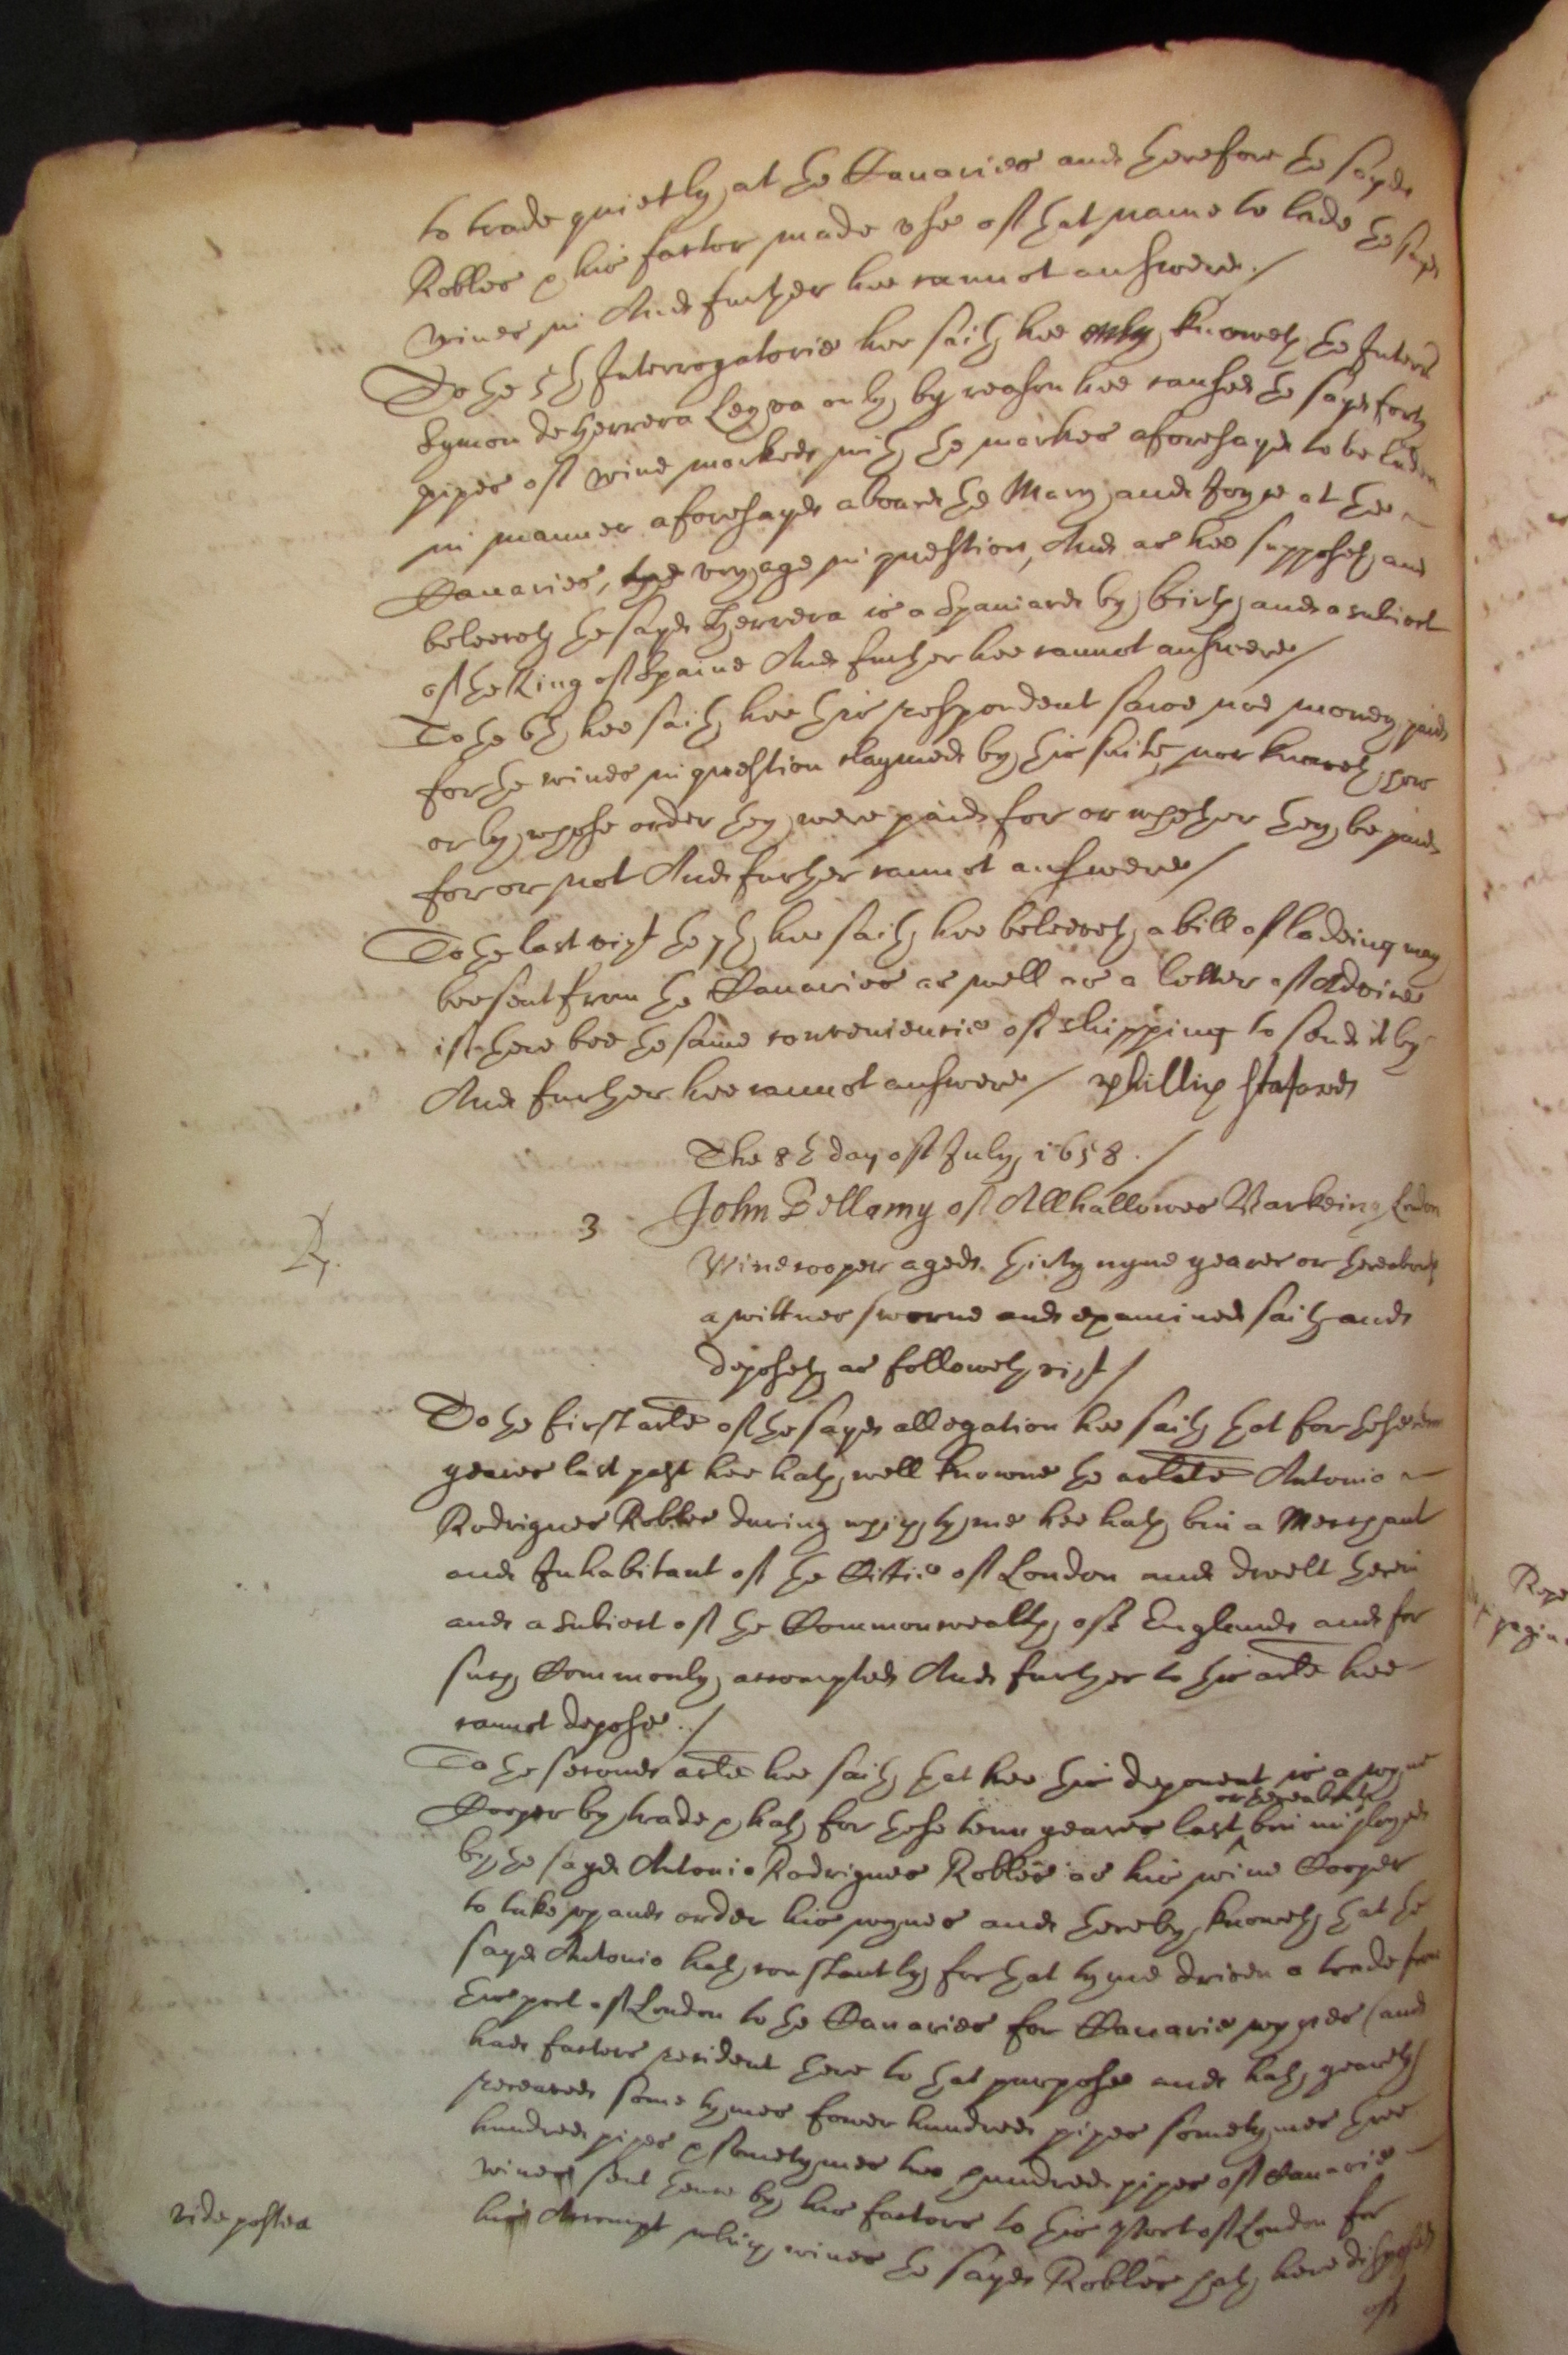 to trade quietly at the Canaries and therefore the sayd
Robles & his factor made use of that name to lade the sayd
wines in And further hee cannot answere./
To the 5th Interrogatorie hee saith hee only knoweth the Interrate
Symon de Herrera Leyva only by reason hee caused the sayd forty
pipes of wine marked with the markes aforesayd to be laden
in manner aforesayd aboard the Mary and Joyce at the
Canaries, the voyage in question, And as hee supposeth and
beleeveth the sayd Herrera is a Spaniard by birth and a subiect
of the King of Spaine And further hee cannot answere/
To the 6th hee saith hee this respondent sawe noe money paid
for the wines in question claymed by this suite, nor knoweth how
or by whose order they were paid for or whether they be paid
for or not And further cannot answere/
To the last vizt the 7th hee saith hee beleeveth a bill of ladeing may
bee sent from the Canaries as well as a letter of Advice
if there bee the same conveniencie of shipping to send it by
And further hee cannot answere/ Phillip Stafford
The 8th day of July 1658./
3 John Bellamy of Allhallowes Barkeing London
Winecooper aged thirty nyne yeares or thereabouts
a wittnes sworne and examined saith and
deposeth as followeth vizt/
To the first arte of the sayd allegation hee saith that for these tenn
yeares last past hee hath well knowne the arlate Antonio
Rodrigues Robles during which tyme hee hath bin a Merchant
and Inhabitant of the Cittie of London and dwelt therein
and a subiect of the Commonwealth of England and for
such Commonly accompted And further to this arte hee
cannot depose./
To the second arte hee saith that hee this deponent is a wyne
or thereabouts
Cooper by trade & hath for these tenn yeares last bin imployed
by the sayd Antonio Rodrigues Robles as his wine Cooper
to take up and order his wynes and thereby knoweth that the
sayd Antonio hath constantly for that tyme driven a trade from
this port of London to the Canaries for Canarie wynes (and
had factors resident there to that purpose and hath yearely
receaved some tymes fower hundred pipes sometymes three
hundred pipes & sometymes two hundred pipes of Canarie
wines sent thence by his factors to this Port of London for
vide postea
his Accompt which wines the sayd Robles hath here disposed
of